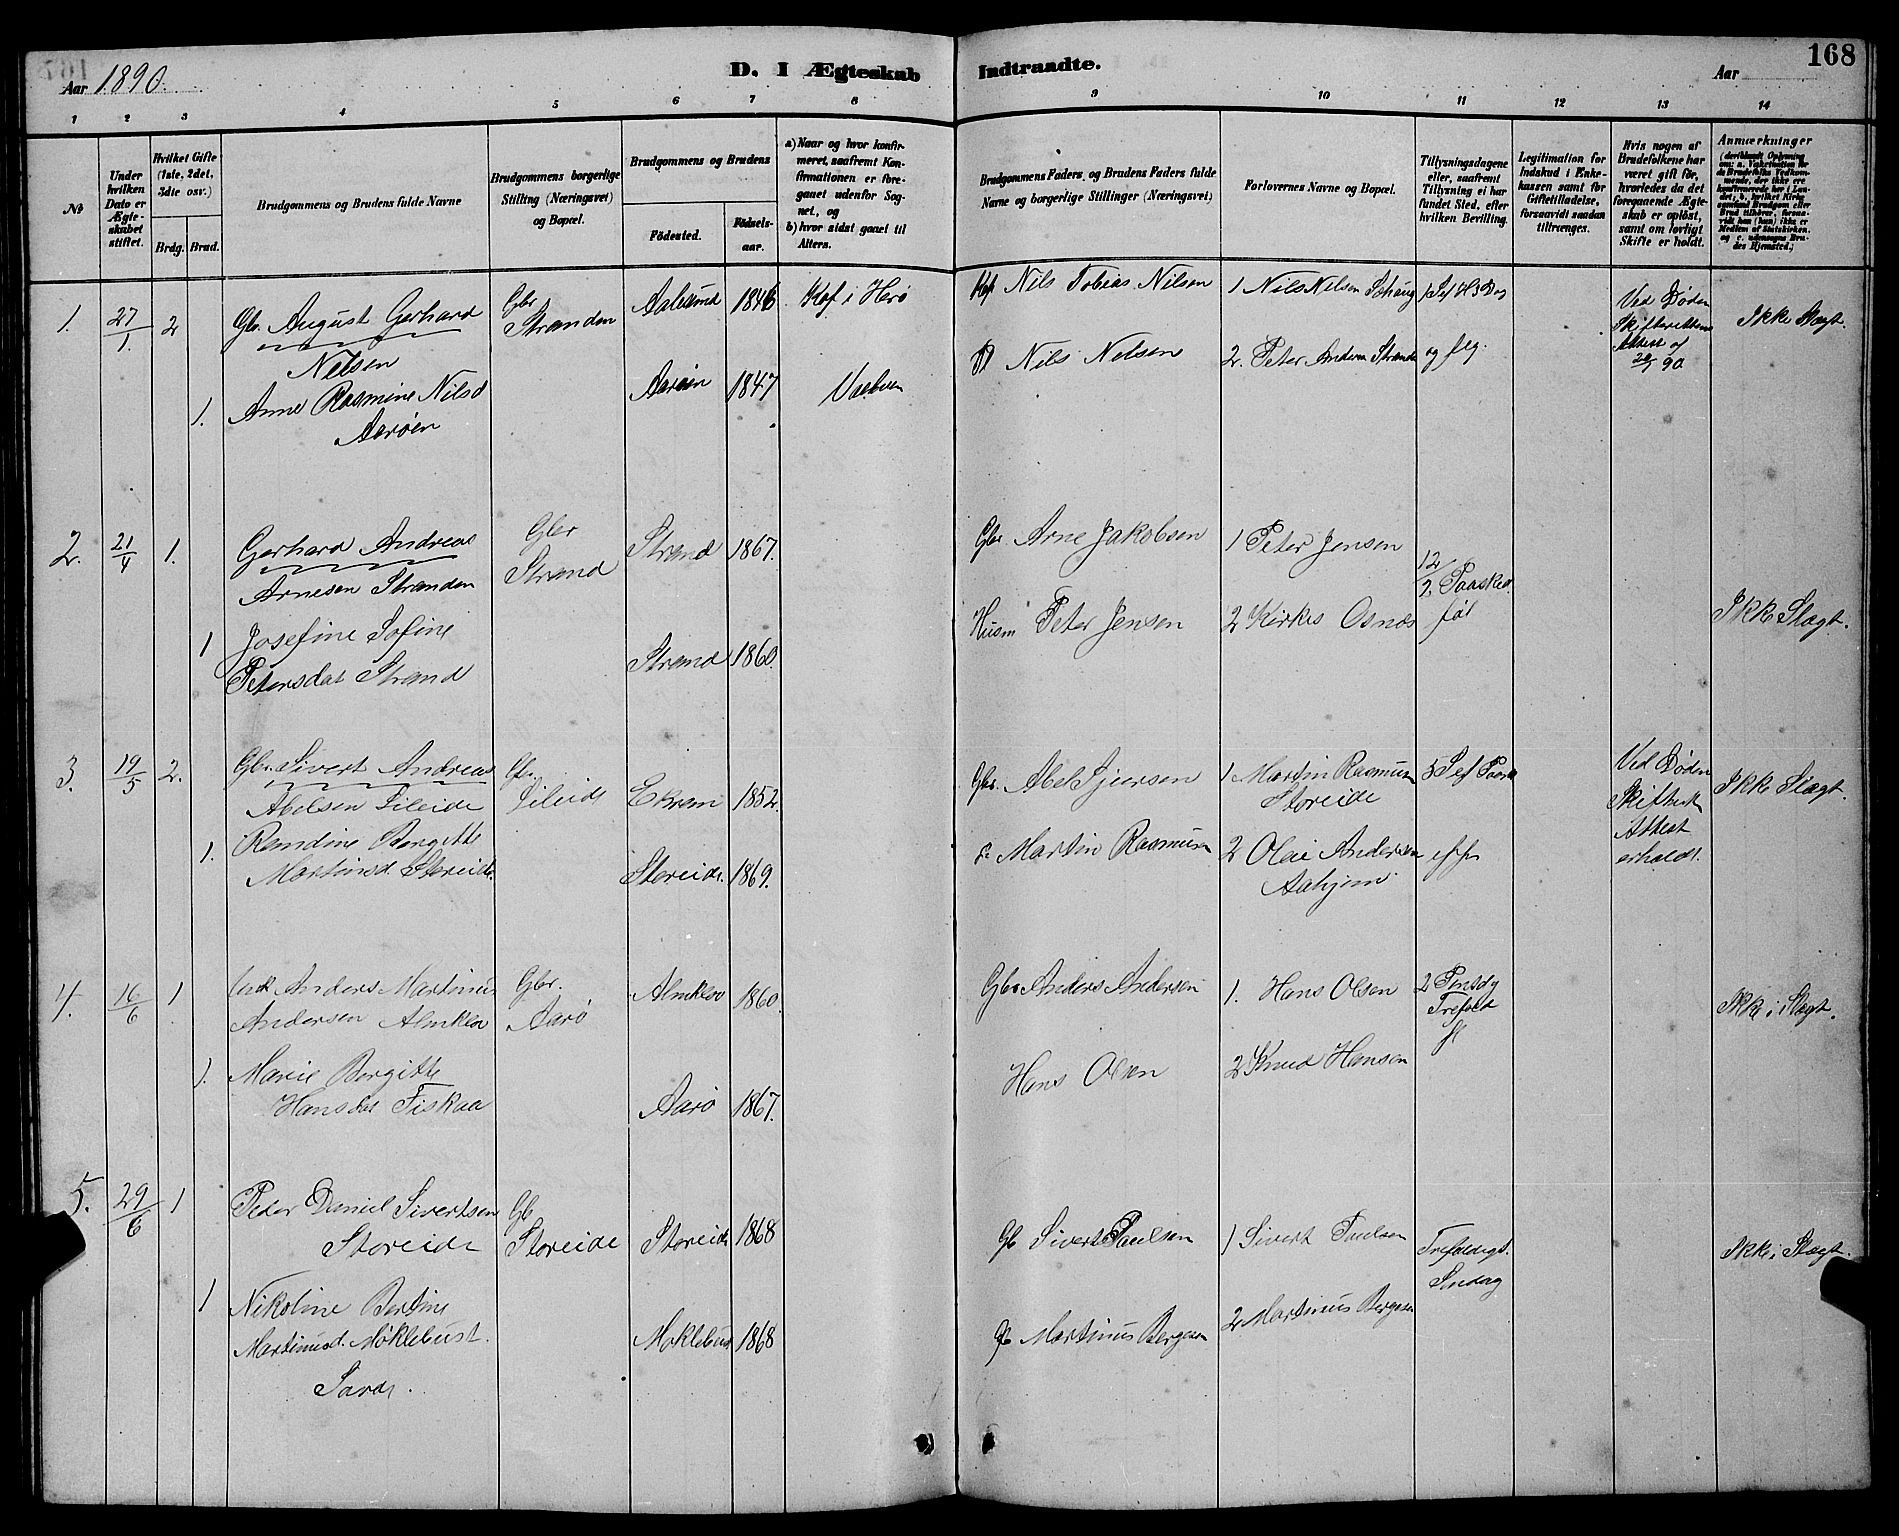 168
Aar 1890.
D. I Ægteskab Indtraadte.
Aar
1 2 3 4 5 6 7 8 9 10 11 12 13 14
№
Under hvilken Dato er Ægteskabet stiftet.
Hvilket Gifte (1ste, 2det, 3die osv.)
Brdg. Brud.
Brudgommens og Brudens fulde Navne
Brudgommens borgerlige Stilling (Næringsvei) og Bopæl.
Brudgommens og Brudens
Fødested.
Fødselsaar.
a) Naar og hvor konfirmeret, saafremt Konfirmationen er foregaaet udenfor Sognet, og
b) hvor sidst gaaet til Alters.
Brudgommens Faders, og Brudens Faders fulde Navne og borgerlige Stillinger (Næringsvei)
Forlovernes Navne og Bopæl.
Tillysningsdagene eller, saafremt Tillysning ei har fundet Sted, efter hvilken Bevilling.
Legitimation for Indskud i Enkekassen samt for Giftetilladelse, forsaavidt saadan tiltrænges.
Hvis nogen af Brudefolkene har været gift før, hvorledes da det foregaaende Ægteskab er opløst, samt om lovligt Skifte er holdt.
Anmærkninger
1. 27/1 2 Gbr. August Gerhard Nilsen
Gbr Stranden
Aalesund 1846 Kof i Herø
Nils Tobias Nilsen
1 Nils Nelsen
Ved Døden
Attest af 20/1 90
Ikke Slægt.
1. Anne Rasmine Nilsd Aarøen
Aarøen 1847
Nils Nelsen
2. Peter Andersen Strande
og flg.
2. 21/4 1. Gerhard Andreas Arnesen Stranden
Gbr Strand
Strand 1867.
Gbr. Arne Jakobsen
1 Peter Jensen
12/2 Paasked.
1 Josefine Sofine Petersdat Strand
Strand 1860.
Husm Peter Jensen
2 Kirkes Osnæs
Ikke Slægt.
3. 19/5 2. Gbr. Sivert Andreas Abelsen Lileide
Gbr. Lileide
Ekrem 1852.
Gbr. Abel Sjursen
1 Martin Rasmusen Storeide
Ved Døden
Attest erholdt.
Ikke Slægt.
1. Randine Bergitte Martinsd. Storeide.
Storeide. 1869.
Martin Rasmusen
2 Olai Andersen Aahjem
4. 16/6 1 Anders Martinus Andersen Almklov
Gbr. Aarø
Almklov 1860.
Gbr Anders Andersen
1. Hans Olsen
2 Pinsdg Trefold
Ikke i Slægt.
1. Marie Bergitte Hansdat Fiskaa
Aarø 1867.
Hans Olsen
2 Knud Hansen
5. 29/6 1 Peder Daniel Sivertsen Storeide
Gb Storeide
Storeide 1868
Gb Sivert Paulsen
1 Sivert Paulsen
Trefoldigt. Sondag
Ikke i Slægt.
1 Nikoline Bertine Martinusd. Møklebust. Sande.
Moklebust 1868
Gb Martinus Bergesen
2 Martinus Bergesen